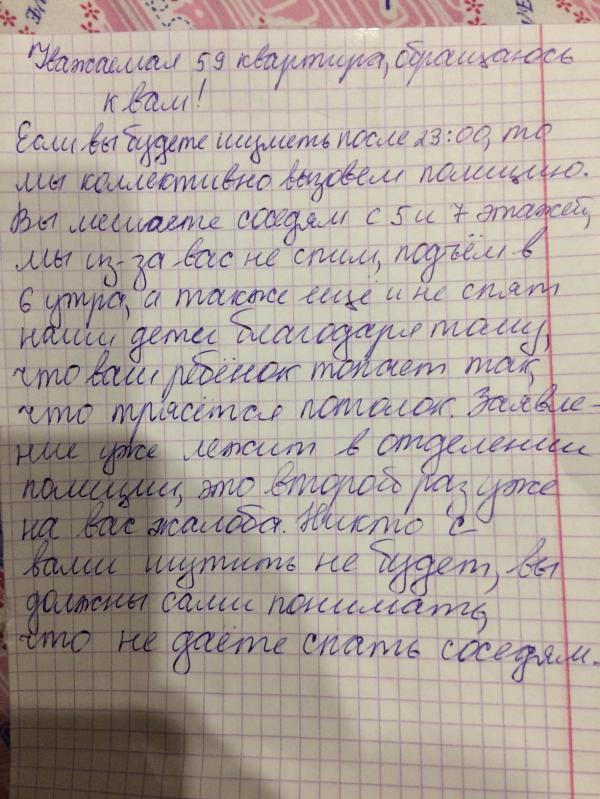 Уважаемая 59 квартира, обращаюсь
к вам!
Если вы будете шуметь после 23:00, то
мы коллективно вызовем полицию.
Вы мешаете соседям с 5 и 7 этажей,
мы из-за вас не спим, подъём в
6 утра, а также ещё и не спят
наши дети благодаря тому,
что ваш ребёнок топает так,
что трясётся потолок. Заявле-
ние уже лежит в отделении
полиции, это второй раз уже
на вас жалоба. Никто с
вами шутить не будет, вы
должны сами понимать,
что не даёте спать соседям.